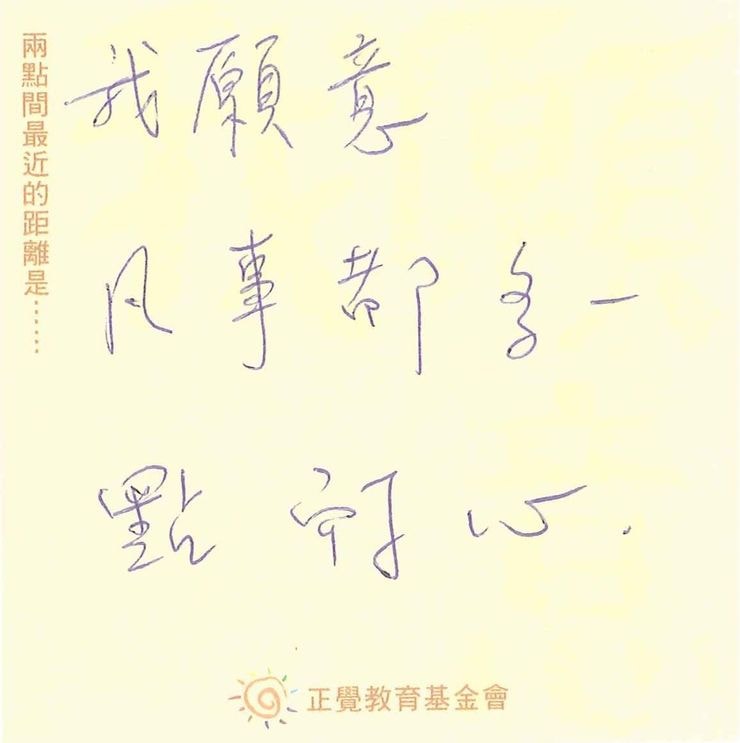 兩點間最近的距離是……
我願意
凡事都多一
點耐心.
正覺教育基金會